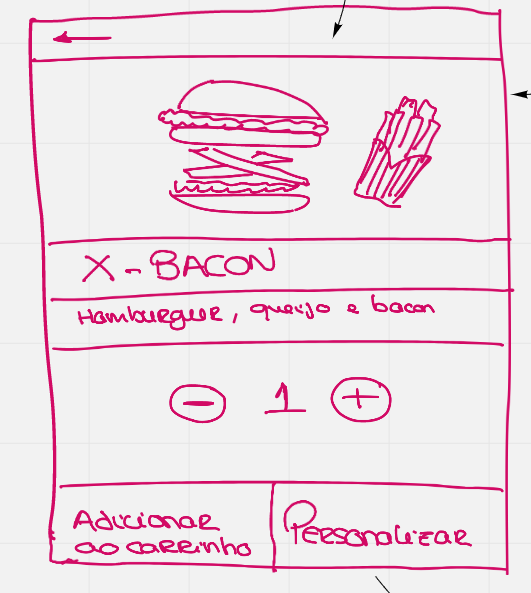 X-BACON
Hamburguer, queijo e bacon
- 1 +
Adicionar
ao carrinho
Personalizar